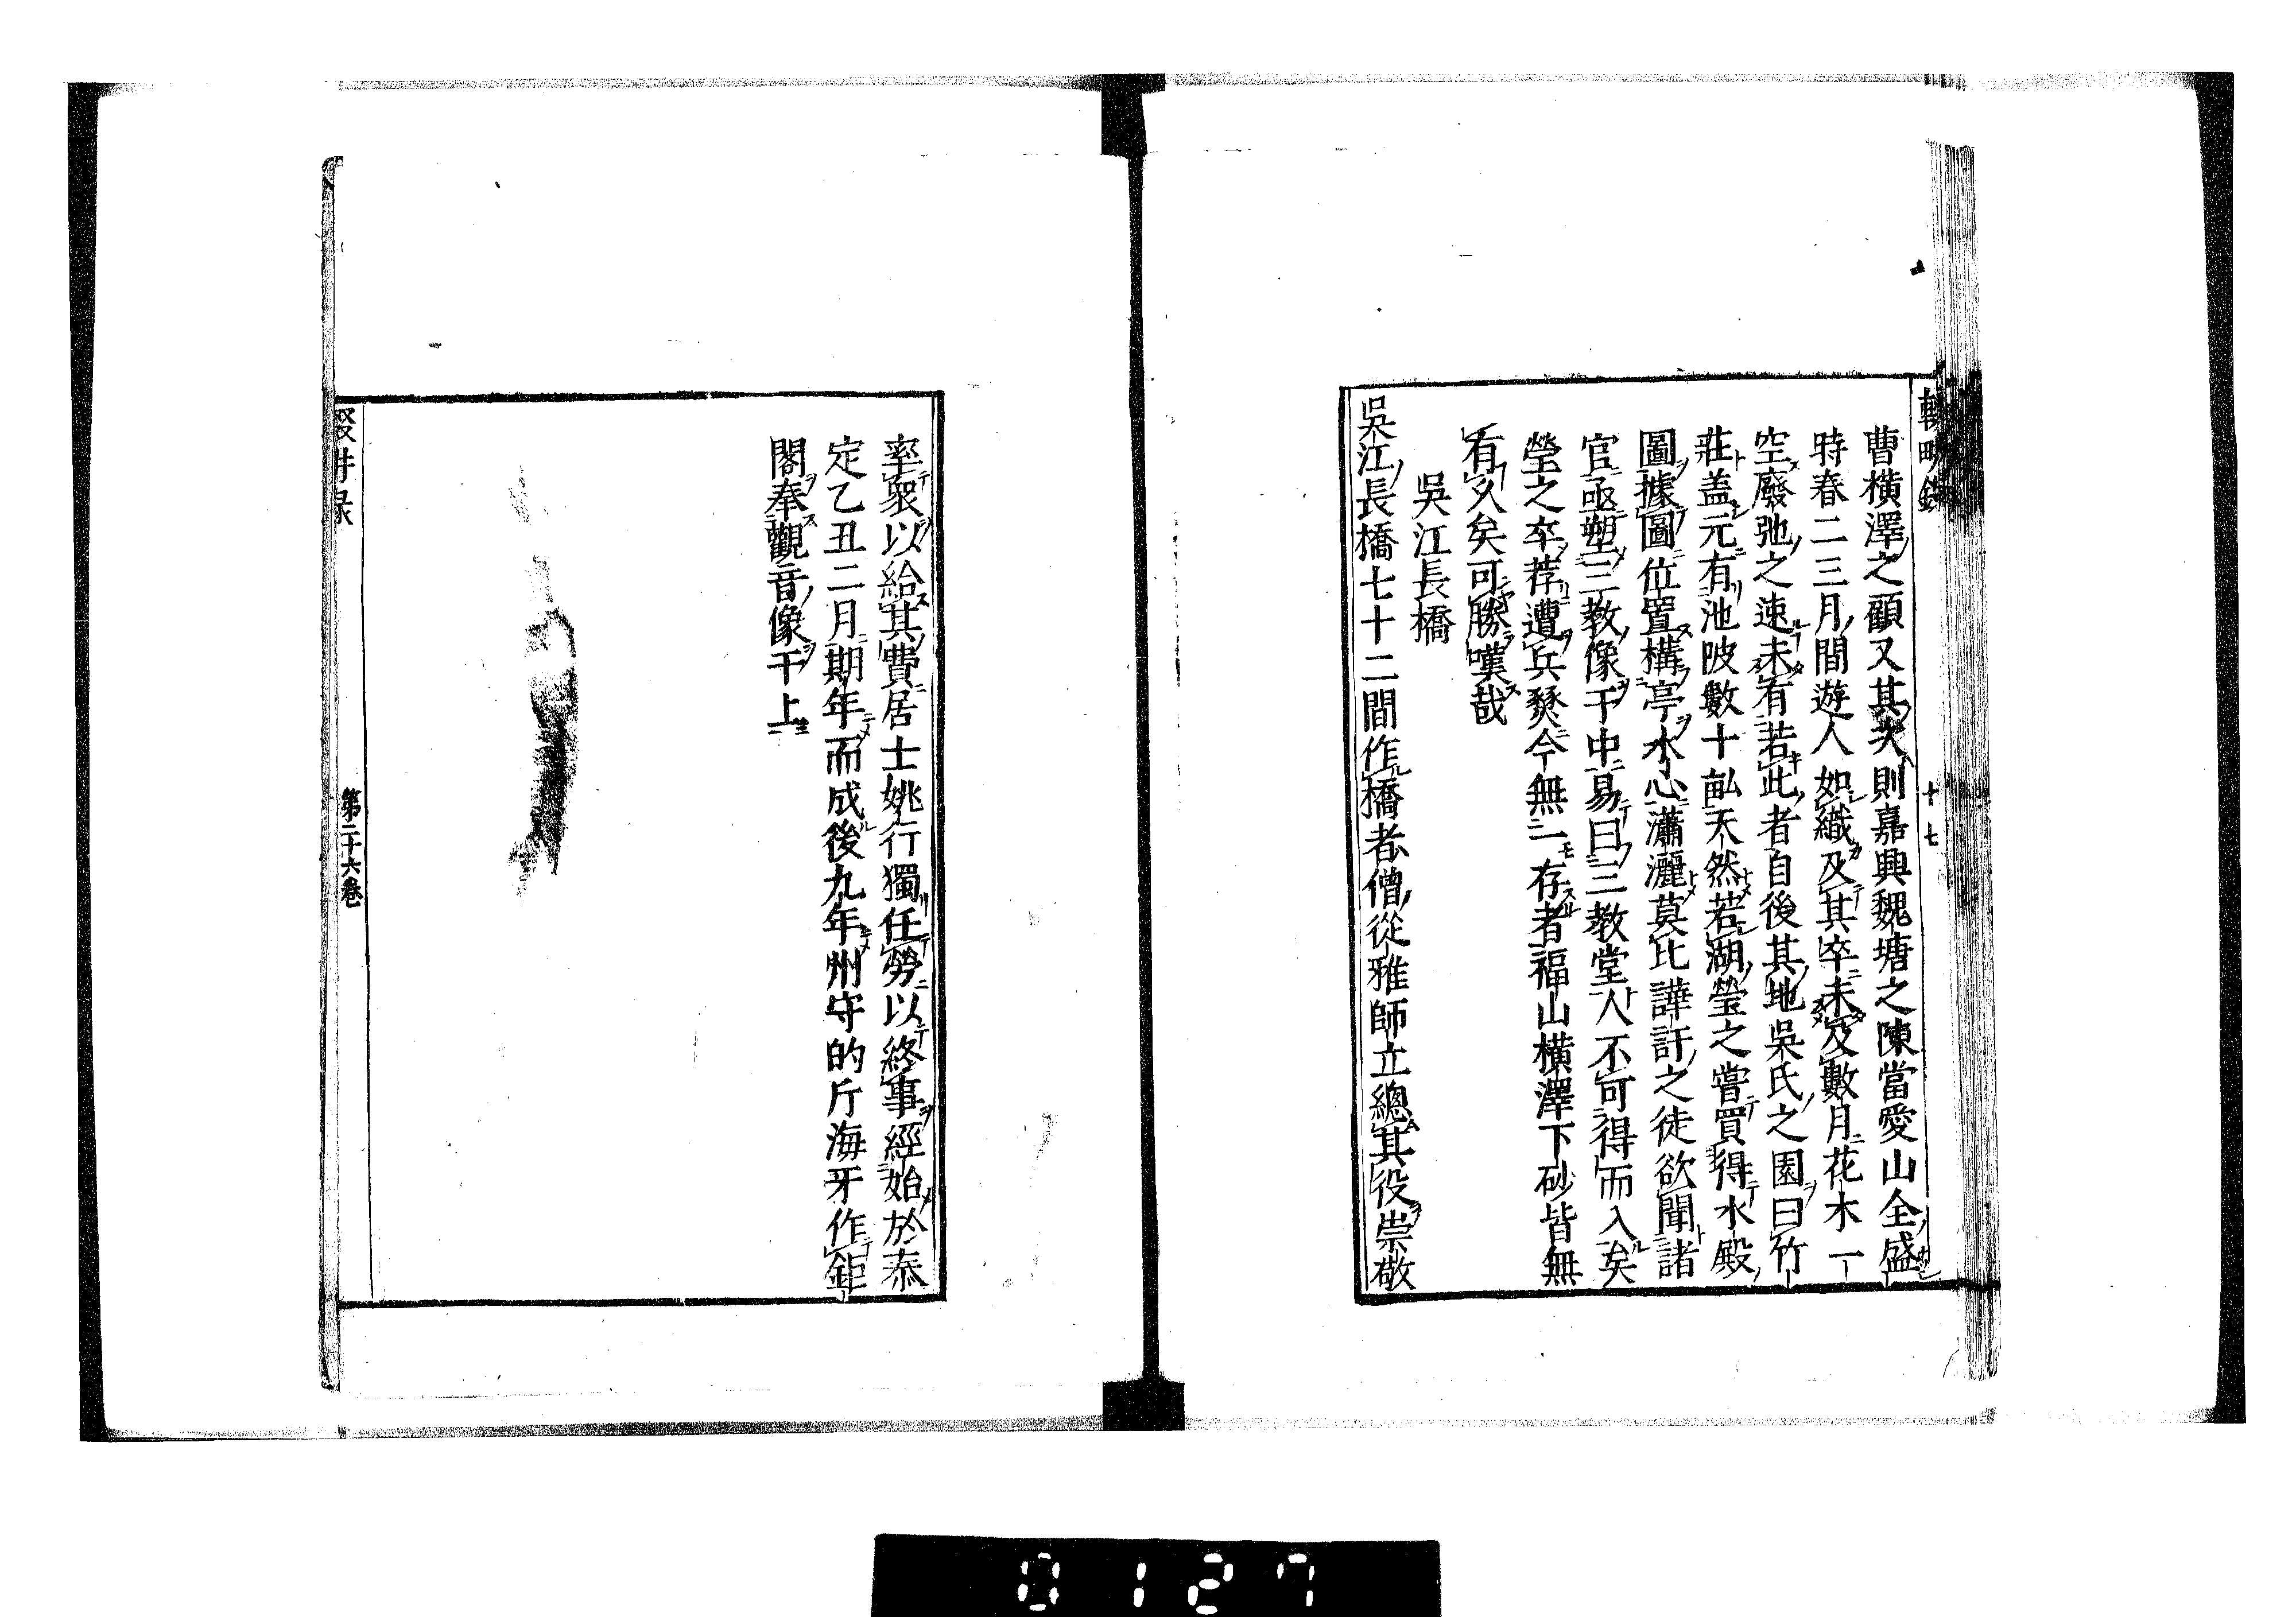 十七
曹橫澤之顧又其次則嘉興魏塘之陳當愛山全盛
時春二三月間遊人如織及其卒未及數月花木一
空廢弛之速未有若此者自後其地吳氏之園曰竹
莊盖元有池陂數十畝天然若湖瑩之嘗買得水殿
圖據圖位置構亭水心瀟灑莫比譁訐之徒欲聞諸
官亟塑三教像于中易曰三教堂人不可得而入矣
瑩之卒荐遭兵燹今無一存者福山橫澤下砂皆無
有久矣可勝嘆哉
吳江長橋
吳江長橋七十二間作橋者僧從雅師立總其役崇敬
率衆以給其費居士姚行獨任勞以終事經始於泰
定乙丑二月期年而成後九年州守的斤海牙作鉅
閣奉觀音像于上
第二十六卷